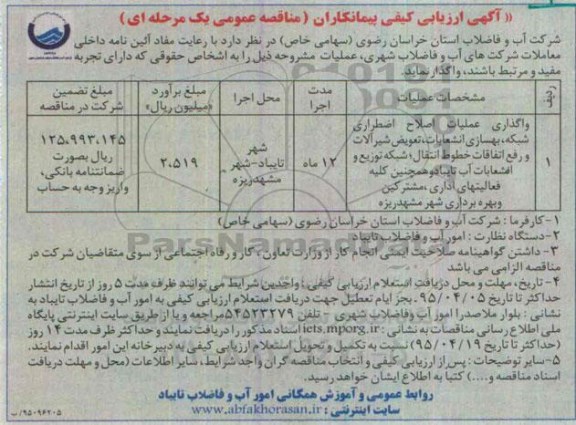 « آگهی ارزیابی کیفی پیمانکاران ( مناقصه عمومی یک مرحله ای ) »
شرکت آب و فاضلاب استان خراسان رضوی (سهامی خاص) در نظر دارد با رعایت مفاد آئین نامه داخلی
معاملات شرکت های آب و فاضلاب شهری، عملیات مشروحه ذیل را به اشخاص حقوقی که دارای تجربه
مفید و مرتبط باشند، واگذار نماید.
ردیف
مشخصات عملیات
مدت اجرا
محل اجرا
مبلغ برآورد «میلیون ریال»
مبلغ تضمین شرکت در مناقصه
۱
واگذاری عملیات اصلاح اضطراری
شبکه، بهسازی انشعابات، تعویض شیرآلات
و رفع اتفاقات خطوط انتقال، شبکه توزیع و
انشعابات آب تایباد و همچنین کلیه
فعالیتهای اداری، مشترکین
وبهره برداری شهر مشهدریزه
۱۲ ماه
شهر
تایباد-شهر
مشهدریزه
۲۰۵۱۹
۱۲۵،۹۹۳،۱۴۵
ریال بصورت
ضمانتنامه بانکی،
واریز وجه به حساب
۱-کارفرما : شرکت آب و فاضلاب استان خراسان رضوی (سهامی خاص)
۲-دستگاه نظارت : امور آب و فاضلاب تایباد
۳- داشتن گواهینامه صلاحیت ایمنی انجام کار از وزارت تعاون ، کار و رفاه اجتماعی از سوی متقاضیان شرکت در
مناقصه الزامی می باشد
۴- تاریخ، مهلت و محل دریافت استعلام ارزیابی کیفی : واجدین شرایط می توانند ظرف مدت ۵ روز از تاریخ انتشار
حداکثر تا تاریخ ۹۵/۰۴/۰۵ بجز ایام تعطیل جهت دریافت استعلام ارزیابی کیفی به امور آب و فاضلاب تایباد به
نشانی : بلوار ملاصدرا امور آب وفاضلاب شهری - تلفن ۵۴۵۲۳۲۷۹ مراجعه و یا از طریق سایت اینترنتی پایگاه
ملی اطلاع رسانی مناقصات به نشانی : iets.mporg.ir اسناد مذکور را دریافت نمایند و حداکثر ظرف مدت ۱۴ روز
(حداکثر تا تاریخ ۹۵/۰۴/۱۹) نسبت به تکمیل و تحویل استعلام ارزیابی کیفی به دبیرخانه این امور اقدام نمایند.
۵-سایر توضیحات : پس از ارزیابی کیفی و انتخاب مناقصه گران واجد شرایط، سایر اطلاعات (محل و مهلت دریافت
اسناد مناقصه و....) کتبا به اطلاع ایشان خواهد رسید.
روابط عمومی و آموزش همگانی امور آب و فاضلاب تایباد
سایت اینترنتی : www.abfakhorasan.ir
۹۵۰۹۶۲۰۵/ب
ParsNamadData